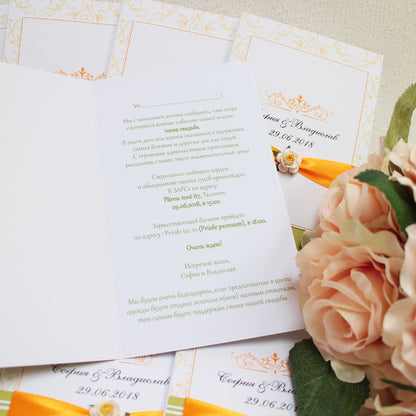 Ув.
Мы с волнением хотим сообщить, что скоро
состоится важное событие нашей жизни:
наша свадьба.
В этот день мы хотим оказаться в окружении
самых близких и дорогих для нас людей.
С огромным удовольствием приглашаем
разделить с нами этот знаменательный день!
Соединение любящих сердец
и объединение наших судеб произойдет:
В ЗАГСе по адресу:
Pärnu mnt 67, Таллинн,
29.06.2018, в 15:00.
Торжественный банкет пройдет:
по адресу: Prisle tee 10 (Prisle peoruum), в 18:00.
Очень ждем!
Искренне ваши,
София и Владислав
Мы будем очень благодарны, если предпочтение в цвете
одежды будет отдано зеленым и(или) желтым оттенкам,
тем самым будет поддержан стиль нашей свадьбы.
София & Владислав
29.06.2018
София & Владислав
29.06.2018